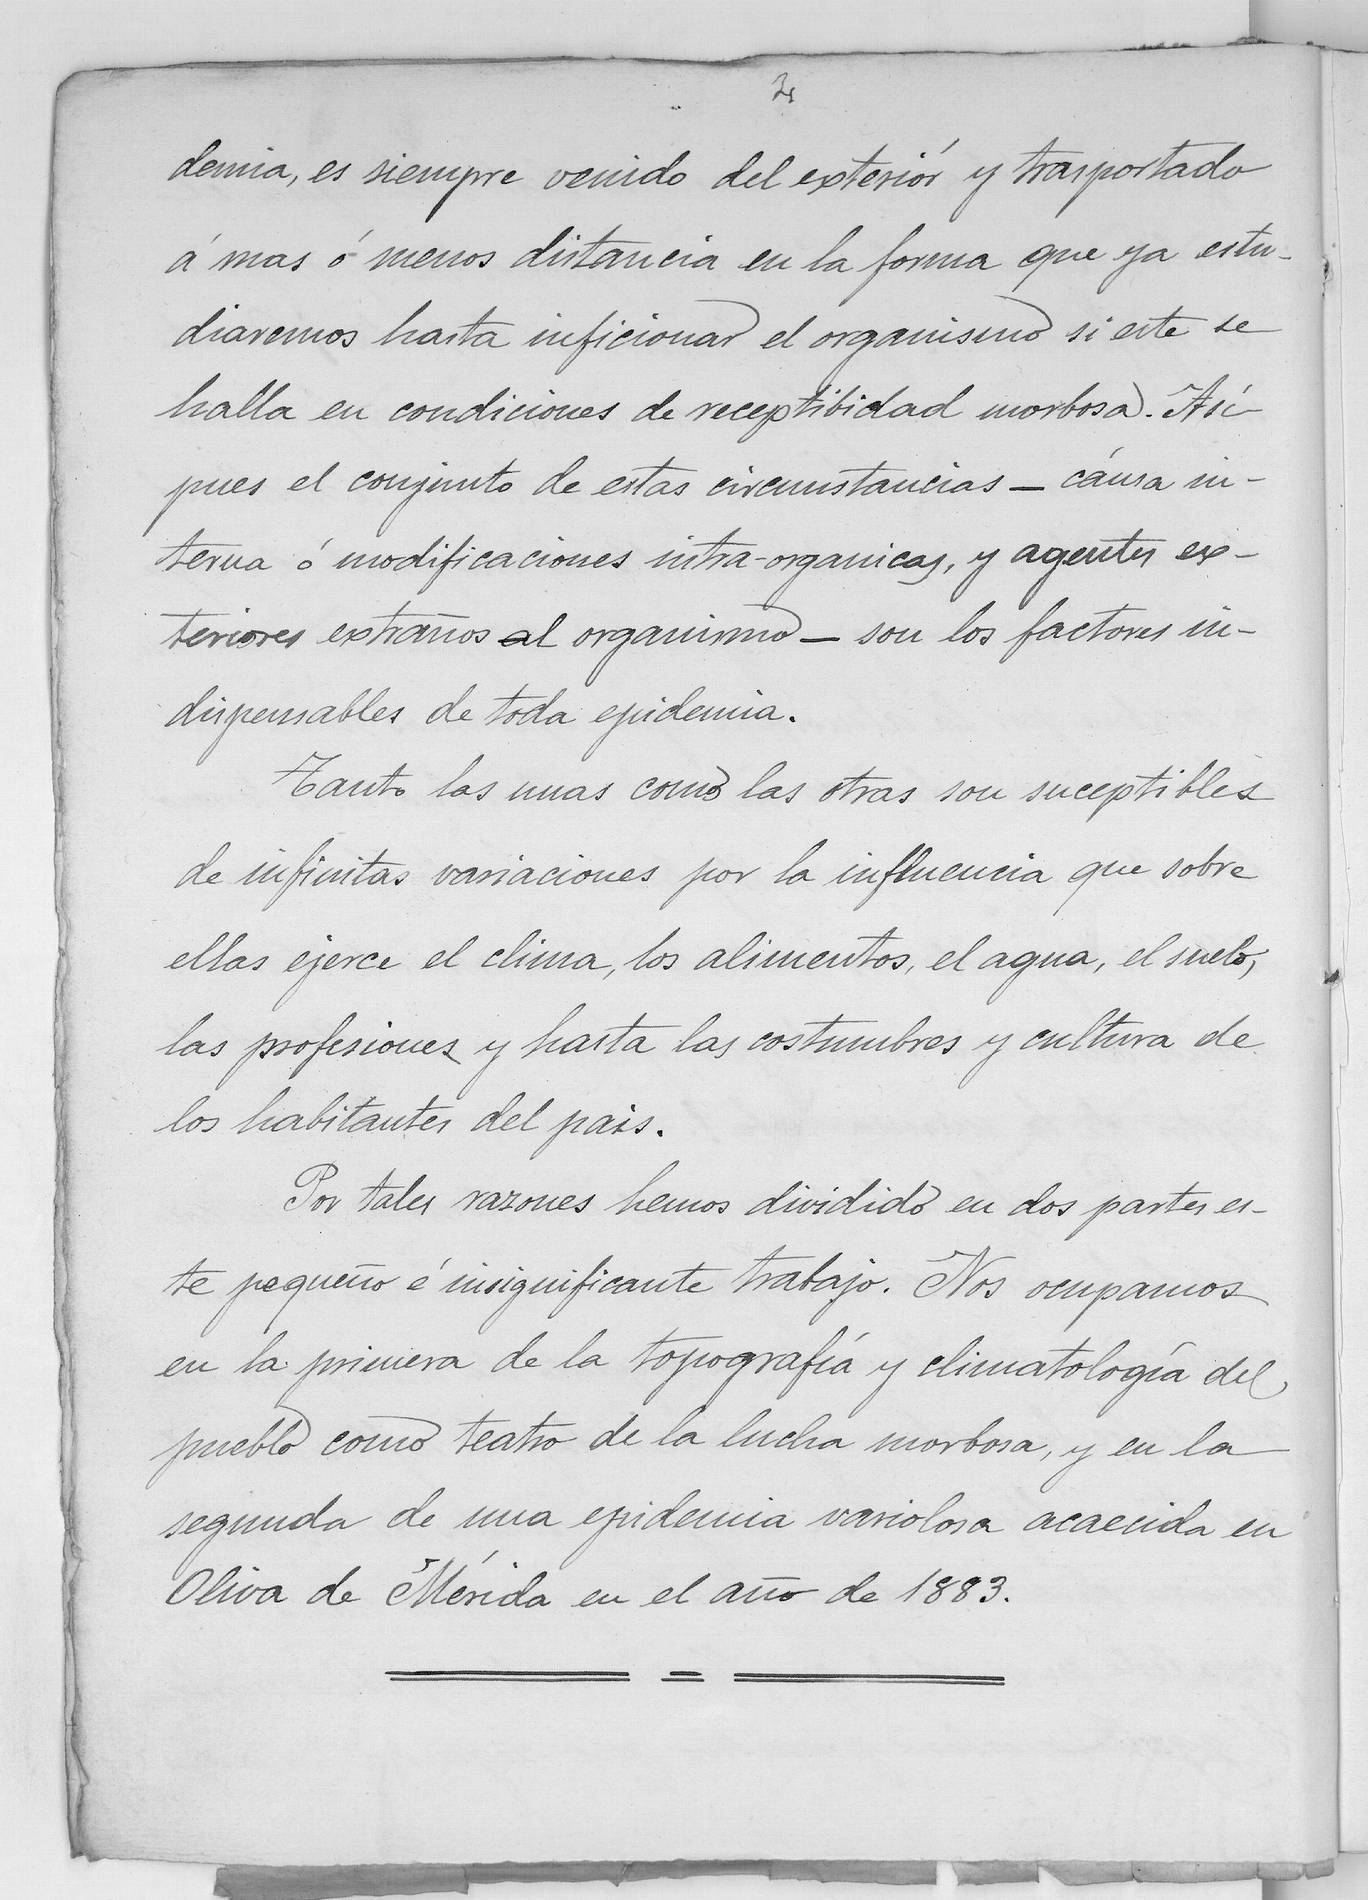 demia, es siempre venido del exteriór y trasportado
á mas ó menos distancia en la forma que ya estu-
diaremos hasta inficionar el organismo si este se
halla en condiciones de receptibidad morbosa. Así
pues el conjunto de estas circunstancias — cáusa in-
terna ó modificaciones intra-organicas, y agentes ex-
teriores extraños al organismo — son los factores in-
dispensables de toda epidemia.
Tanto las unas como las otras son suceptibles
de infinitas variaciones por la influencia que sobre
ellas ejerce el clima, los alimentos, el agua, el suelo,
las profesiones y hasta las costumbres y cultura de
los habitantes del pais.
Por tales razones hemos dividido en dos partes es-
te pequeño é insignificante trabajo. Nos ocupamos
en la primera de la topografía y climatología del
pueblo como teatro de la lucha morbosa, y en la
segunda de una epidemia variolosa acaecida en
Oliva de Mérida en el año de 1883.